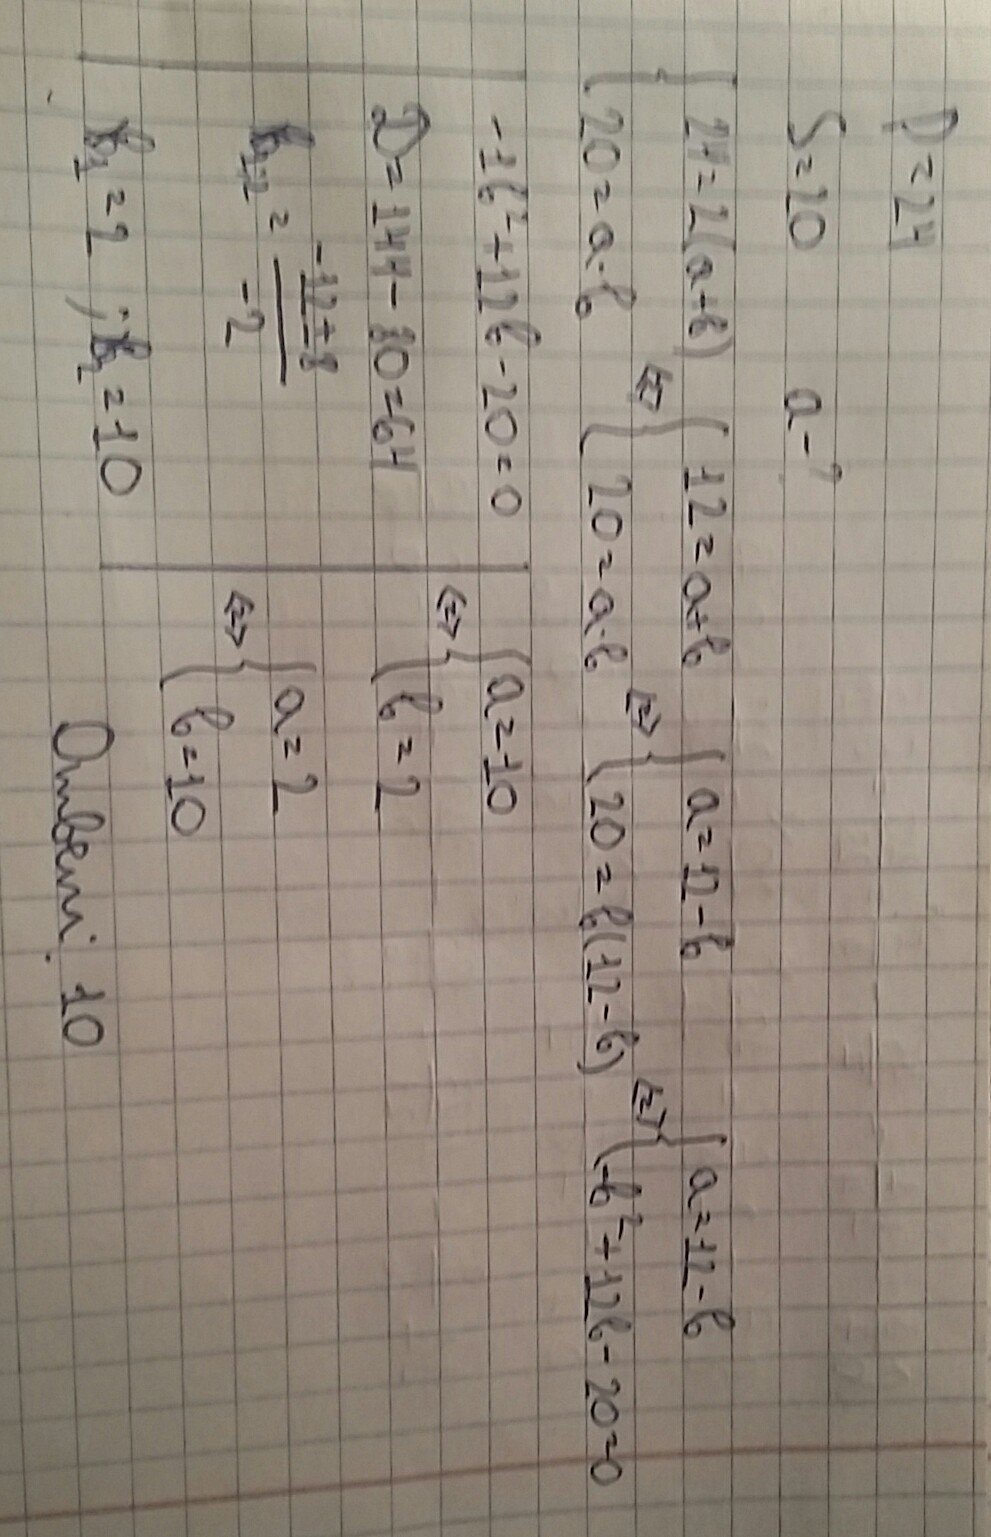 P = 24
S = 20 a - ?
{ 24 = 2(a+b) ⇔ { 12 = a+b ⇔ { a = 12 - b ⇔ { a = 12 - b
{ 20 = a·b { 20 = a·b { 20 = b(12 - b) { -b² + 12b - 20 = 0
-1b² + 12b - 20 = 0
D = 144 - 80 = 64
b₁,₂ = (-12 ± 8) / -2
b₁ = 2 ; b₂ = 10
⇔ { a = 10
{ b = 2
⇔ { a = 2
{ b = 10
Ответ: 10